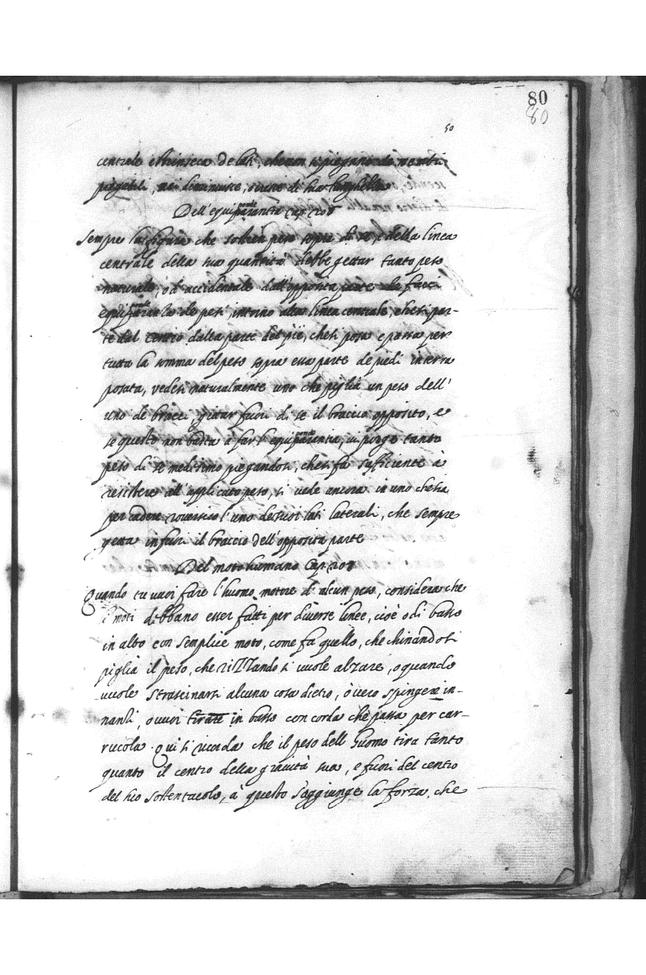 80
80
50
centrale estrinseca de lati, che non si piegano da membri
piegabili, mai diminuisce, o cresce di sua lunghezza
Dell'equiponderantia Cap. 206
Sempre la figura che sostien peso sopra di se, e della linea
centrale della sua quantità debbe gettar tanto peso
naturale, o accidentale dall'opposta parte che facci
equiponderantia de pesi intorno alla linea centrale, che si par-
te dal centro dalla parte del piè, che si posa e passa per
tutta la somma del peso sopra essa parte de piedi in terra
posata, vedesi naturalmente uno che piglia un peso dell'
uno de bracci gettar fuori di se il braccio opposito, e
se questo non basta à far l'equiponderantia, vi porge tanto
peso di se medesimo piegandosi, che si fa sufficiente à
resistere all'applicato peso, si vede ancora in uno che sia
per cadere rovescio l'uno de suoi lati laterali, che sempre
getta in fuori il braccio dell'opposita parte
Del moto humano Cap.
Quando tu vuoi fare l'huomo motore d'alcun peso, considera che
i moti debbano esser fatti per diverse linee, cioè o di basso
in alto con semplice moto, come fa quello, che chinandosi
piglia il peso, che rizzando si vuole alzare, o quando
vuole strascinarsi alcuna cosa dietro, ò vero spingere in-
nanzi, o vuoi tirare in basso con corda che passa per car-
rucola. Qui si ricorda che il peso dell'huomo tira tanto
quanto il centro della gravità sua, e fuori del centro
del suo sostentacolo, à questo s'aggiunge la forza, che